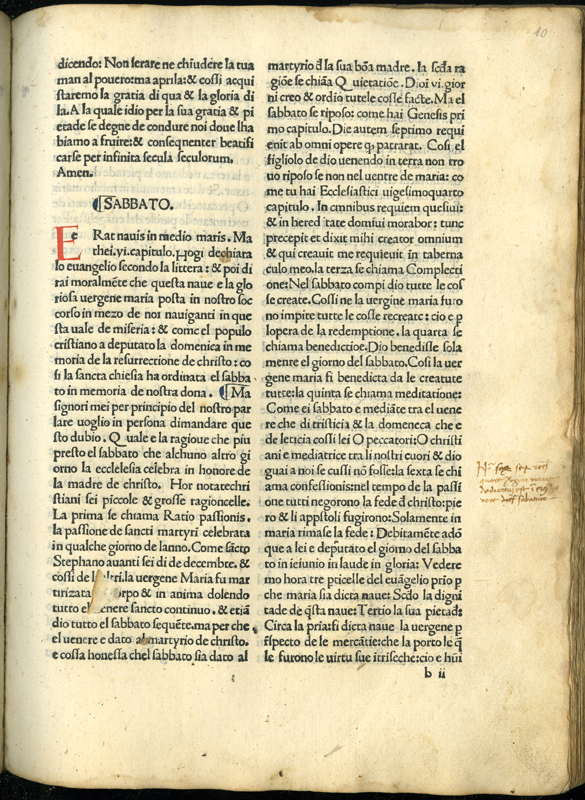 10
dicendo: Non serare ne chiudere la tua
man al pouero:ma aprila:& cossi acqui
staremo la gratia di qua & la gloria di
la. A la quale idio per la sua gratia & pi
etade se degne de condure noi doue lha
biamo a fruire:& consequenter beatifi
carse per infinita secula seculorum.
Amen.
SABBATO.
E Rat nauis in medio maris. Ma
thei.vi.capitulo. Hogi dechiara
lo euangelio secondo la littera: & poi di
rai moralmēte che questa naue e la glo
riosa uergene maria posta in nostro soc
corso in mezo de noi nauiganti in que
sta uale di miseria: & come el populo
cristiano a deputato la domenica in me
moria de la resurrectione de christo: co
si la sancta chiesia ha ordinata el sabba
to in memoria de nostra dona. Ma
signori mei per principio del nostro par
lare uoglio in persona dimandare que
sto dubio. Quale e la ragioue che piu
presto el sabbato che alchuno altro gi
orno la ecclelesia celebra in honore de
la madre de christo. Hor notatechri
stiani sei piccole & grosse ragioncelle.
La prima se chiama Ratio passionis.
la passione de sancti martyri celebrata
in qualche giorno de lanno. Come sācto
Stephano auanti sei di de decembre. &
cossi de la uergene Maria fu mar
tirizata & in anima dolendo
tutto el sancto continuo. & etiā
dio tutto el sabbato sequēte. ma per che
el uenere e dato al martyrio de christo.
e cossa honessa chel sabbato sia dato al
martyrio đ la sua bōa madre. la scđa ra
giōe se chiāa Quietatiōe. Dioī vi.gior
ni creo & ordīo tutele cosse facte. Ma el
sabbato se riposo: come hai Genesis pri
mo capitulo. Die autem septimo requi
euit ab omni opere q̄ patrarat. Cosi el
figliolo de dio uenendo in terra non tro
uo riposo se non nel uentre de maria: co
me tu hai Ecclesiastici uigesimoquarto
capitulo. In cmnibus requiem quesiui:
& in hereditate domiui morabor: tunc
precepit et dixit mihi creator omnium
& qui creauit me requieuit in taberna
culo meo. la terza se chiama Complecti
one: Nel sabbato compi dio tutte le cos
se create. Cossi ne la uergine maria furo
no impite tutte le cosse recreate: cio e p
lopera de la redemptione. la quarta se
chiama benedictioe. Dio benedisse sola
mente el giorno del sabbato. Cosi la uer
gene maria fi benedicta da le creature
tutte: la quinta se chiama meditatione:
Come ei sabbato e mediāte tra el uene
re che di tristicia & la domeneca che e
de leticia cossi lei O peccatori: O christi
ani e mediatrice tra li nostri cuori & dio
guai a noi se cussi nō fosse: la sexta se chi
ama confessionis: nel tempo de la passi
one tutti negorono la fede đ christo: pie
ro & li appstoli fugirono: Solamente in
maria rimase la fede: Debitamēte adō
que a lei e deputato el giorno del sabba
to in ieiunio in laude in gloria: Vedere
mo hora tre pticelle del euāgelio prio p
che maria sia dicta naue: Scđo la digni
tade de q̄sta naue: Tertio la sua pietad:
Circa la pria: fi dicta naue la uergene p
rīspecto de le mercātie: che la porto le q̄
le furono le uirtu sue ītriseche: cio e hūi
b ii